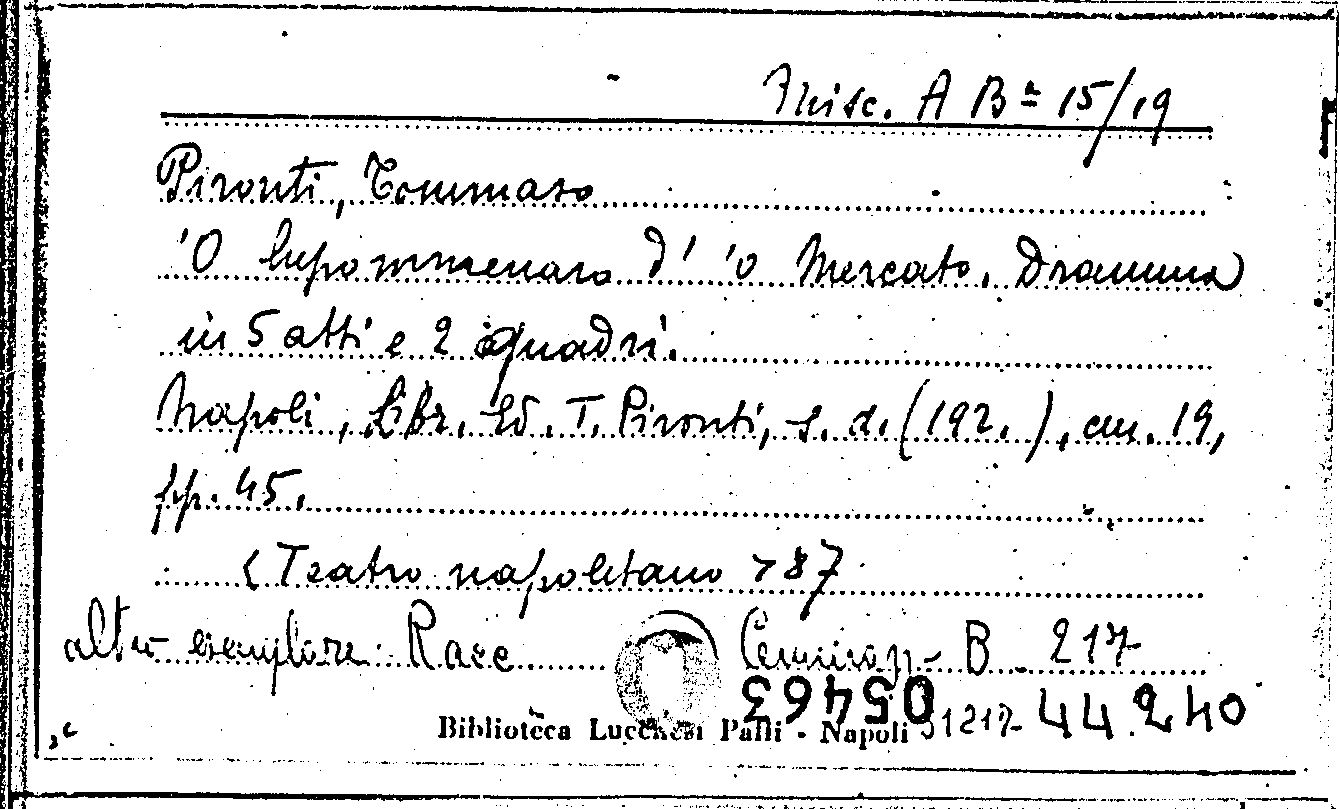 Misc. A Bª 15/19
Pironti, Tommaso
'O lupommenaro d' 'o Mercato. Dramma
in 5 atti e 2 quadri.
Napoli, Libr. Ed. T. Pironti, s. d. (192.), cm. 19,
pp. 45.
< Teatro napoletano > 87
altro esemplare: Racc B 217
05463
Biblioteca Lucchesi Palli - Napoli 44.240